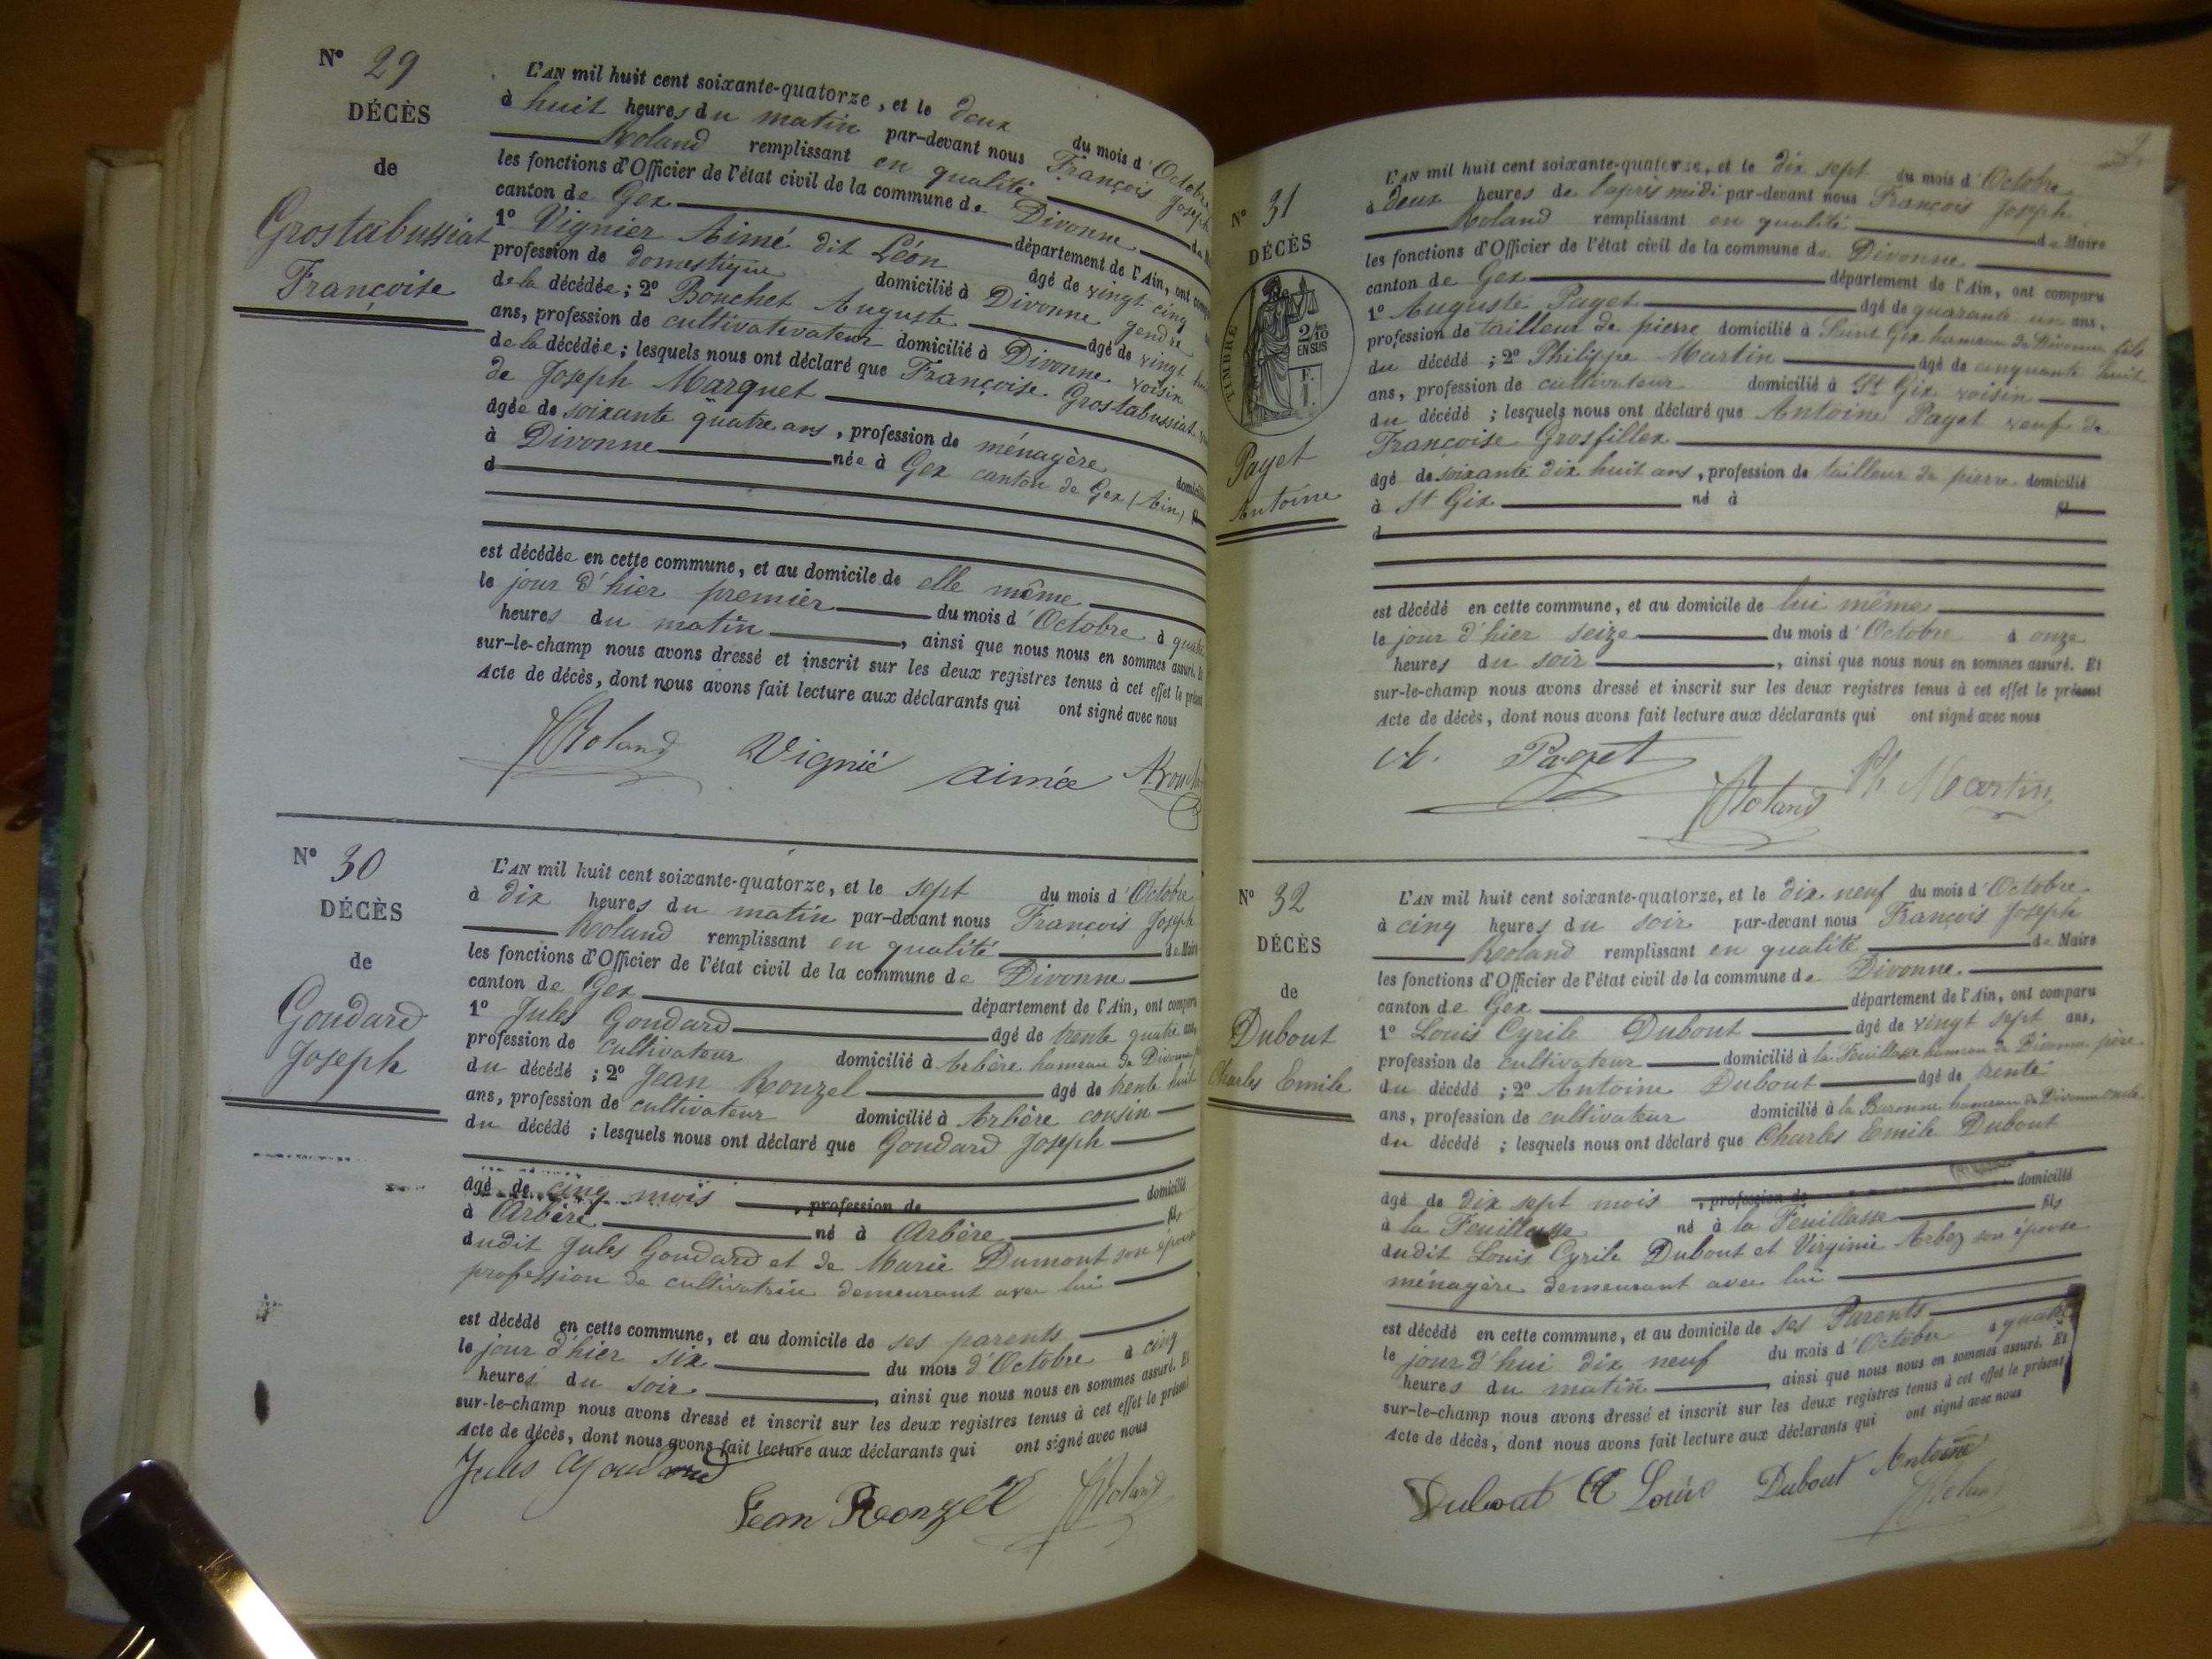 N° 29
DÉCÈS
de
Grostabussiat
Françoise
L'AN mil huit cent soixante-quatorze, et le deux du mois d'Octobre
à huit heures du matin par-devant nous François Joseph
Roland remplissant en qualité
les fonctions d'Officier de l'état civil de la commune de Divonne
canton de Gex département de l'Ain, ont
1° Vignier Aimé dit Léon âgé de vingt cinq
profession de domestique domicilié à Divonne gendre
de la décédée ; 2° Bouchet Auguste âgé de vingt
ans, profession de cultivativateur domicilié à Divonne voisin
de la décédée ; lesquels nous ont déclaré que Françoise Grostabussiat
de Joseph Marquet
âgée de soixante quatre ans, profession de ménagère
à Divonne née à Gex canton de Gex (Ain)
d
est décédée en cette commune, et au domicile de elle même
le jour d'hier premier du mois d'Octobre à
heures du matin, ainsi que nous nous en sommes assuré. Et
sur-le-champ nous avons dressé et inscrit sur les deux registres tenus à cet effet le présent
Acte de décès, dont nous avons fait lecture aux déclarants qui ont signé avec nous
JRoland Vignié aimée
N° 30
DÉCÈS
de
Goudard
Joseph
L'AN mil huit cent soixante-quatorze, et le sept du mois d'Octobre
à dix heures du matin par-devant nous François Joseph
Roland remplissant en qualité de Maire
les fonctions d'Officier de l'état civil de la commune de Divonne
canton de Gex département de l'Ain, ont comparu
1° Jules Goudard âgé de trente quatre ans,
profession de cultivateur domicilié à Arbère hameau de Divonne
du décédé ; 2° Jean Ronzel âgé de trente huit
ans, profession de cultivateur domicilié à Arbère cousin
du décédé ; lesquels nous ont déclaré que Goudard Joseph
âgé de cinq mois , profession de domicilié
à Arbère né à Arbère fils
dudit Jules Goudard et de Marie Dumont son épouse
profession de cultivatrice demeurant avec lui
est décédé en cette commune, et au domicile de ses parents
le jour d'hier six du mois d'Octobre à cinq
heures du soir, ainsi que nous nous en sommes assuré. Et
sur-le-champ nous avons dressé et inscrit sur les deux registres tenus à cet effet le présent
Acte de décès, dont nous avons fait lecture aux déclarants qui ont signé avec nous
Jules Goudard
Jean Ronzel JRoland
N° 31
DÉCÈS
TIMBRE
2/10
EN SUS
Paget
Antoine
L'AN mil huit cent soixante-quatorze, et le dix sept du mois d'Octobre
à deux heures de l'après midi par-devant nous François Joseph
Roland remplissant en qualité de Maire
les fonctions d'Officier de l'état civil de la commune de Divonne
canton de Gex département de l'Ain, ont comparu
1° Auguste Paget âgé de quarante un ans,
profession de tailleur de pierre domicilié à Saint Gix hameau de Divonne fils
du décédé ; 2° Philippe Martin âgé de cinquante huit
ans, profession de cultivateur domicilié à St Gix voisin
du décédé ; lesquels nous ont déclaré que Antoine Paget veuf de
Françoise Grosfillex
âgé de soixante dix huit ans, profession de tailleur de pierre domicilié
à St Gix né à
d
est décédé en cette commune, et au domicile de lui même
le jour d'hier seize du mois d'Octobre à onze
heures du soir, ainsi que nous nous en sommes assuré. Et
sur-le-champ nous avons dressé et inscrit sur les deux registres tenus à cet effet le présent
Acte de décès, dont nous avons fait lecture aux déclarants qui ont signé avec nous
A. Paget JRoland Ph Martin
N° 32
DÉCÈS
de
Dubout
Charles Emile
L'AN mil huit cent soixante-quatorze, et le dix neuf du mois d'Octobre
à cinq heures du soir par-devant nous François Joseph
Roland remplissant en qualité de Maire
les fonctions d'Officier de l'état civil de la commune de Divonne.
canton de Gex département de l'Ain, ont comparu
1° Louis Cyrile Dubout âgé de vingt sept ans,
profession de cultivateur domicilié à la Feuillasse hameau de Divonne père
du décédé ; 2° Antoine Dubout âgé de trente
ans, profession de cultivateur domicilié à la Baronne hameau de Divonne oncle
du décédé ; lesquels nous ont déclaré que Charles Emile Dubout
âgé de dix sept mois , profession de domicilié
à la Feuillasse né à la Feuillasse fils
dudit Louis Cyrile Dubout et Virginie Arbez son épouse
ménagère demeurant avec lui
est décédé en cette commune, et au domicile de ses Parents
le jour d'hui dix neuf du mois d'Octobre à quatre
heures du matin, ainsi que nous nous en sommes assuré. Et
sur-le-champ nous avons dressé et inscrit sur les deux registres tenus à cet effet le présent
Acte de décès, dont nous avons fait lecture aux déclarants qui ont signé avec nous
Dubout Louis Dubout Antoine
JRoland